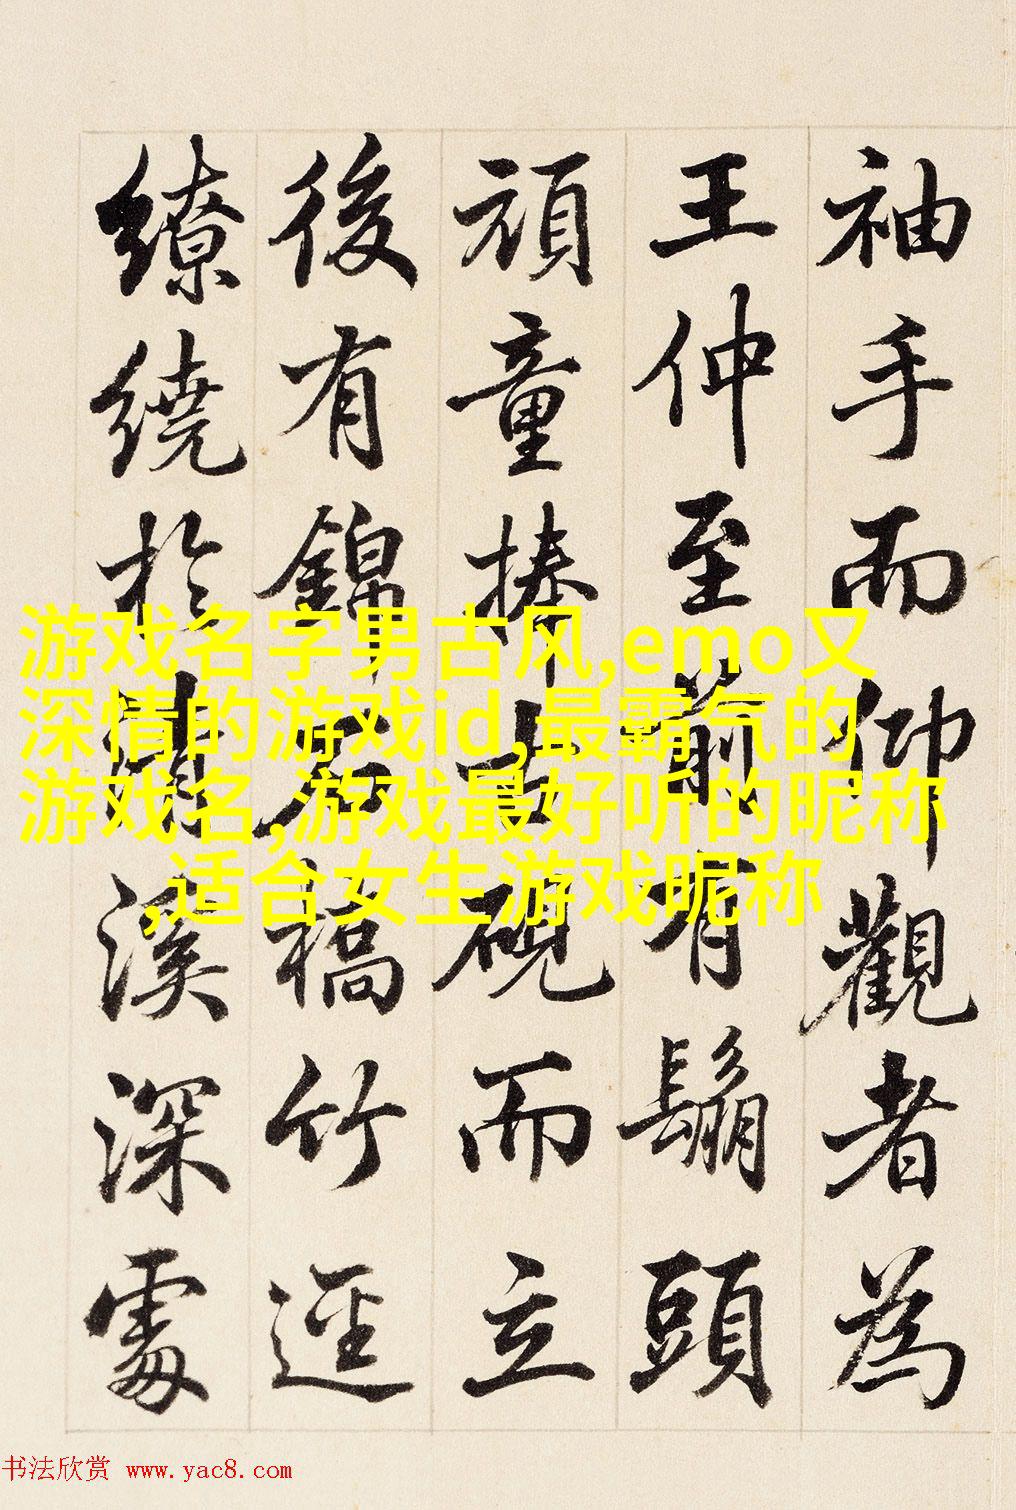 袖手而仰觀者為
王仲至前有鬅頭
頑童捧古硯而立
後有錦石橋竹逕
繚繞於清溪深處
游戏名字男古风,emo又
深情的游戏id,最霸气的
游戏名,游戏最好听的昵称
,适合女生游戏昵称
书法欣赏 www.yac8.com